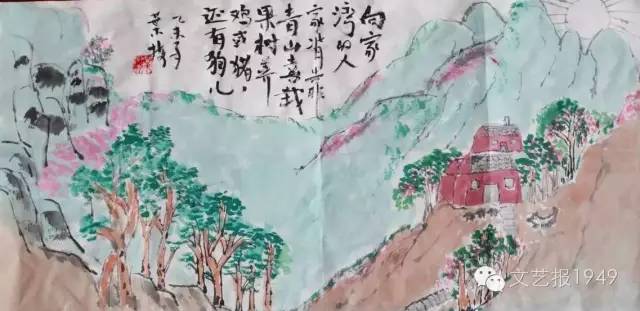 向家
湾的人
家背靠
青山喜栽
果树养
鸡或猪，
还有狗儿
乙未年
叶梅
文艺报1949